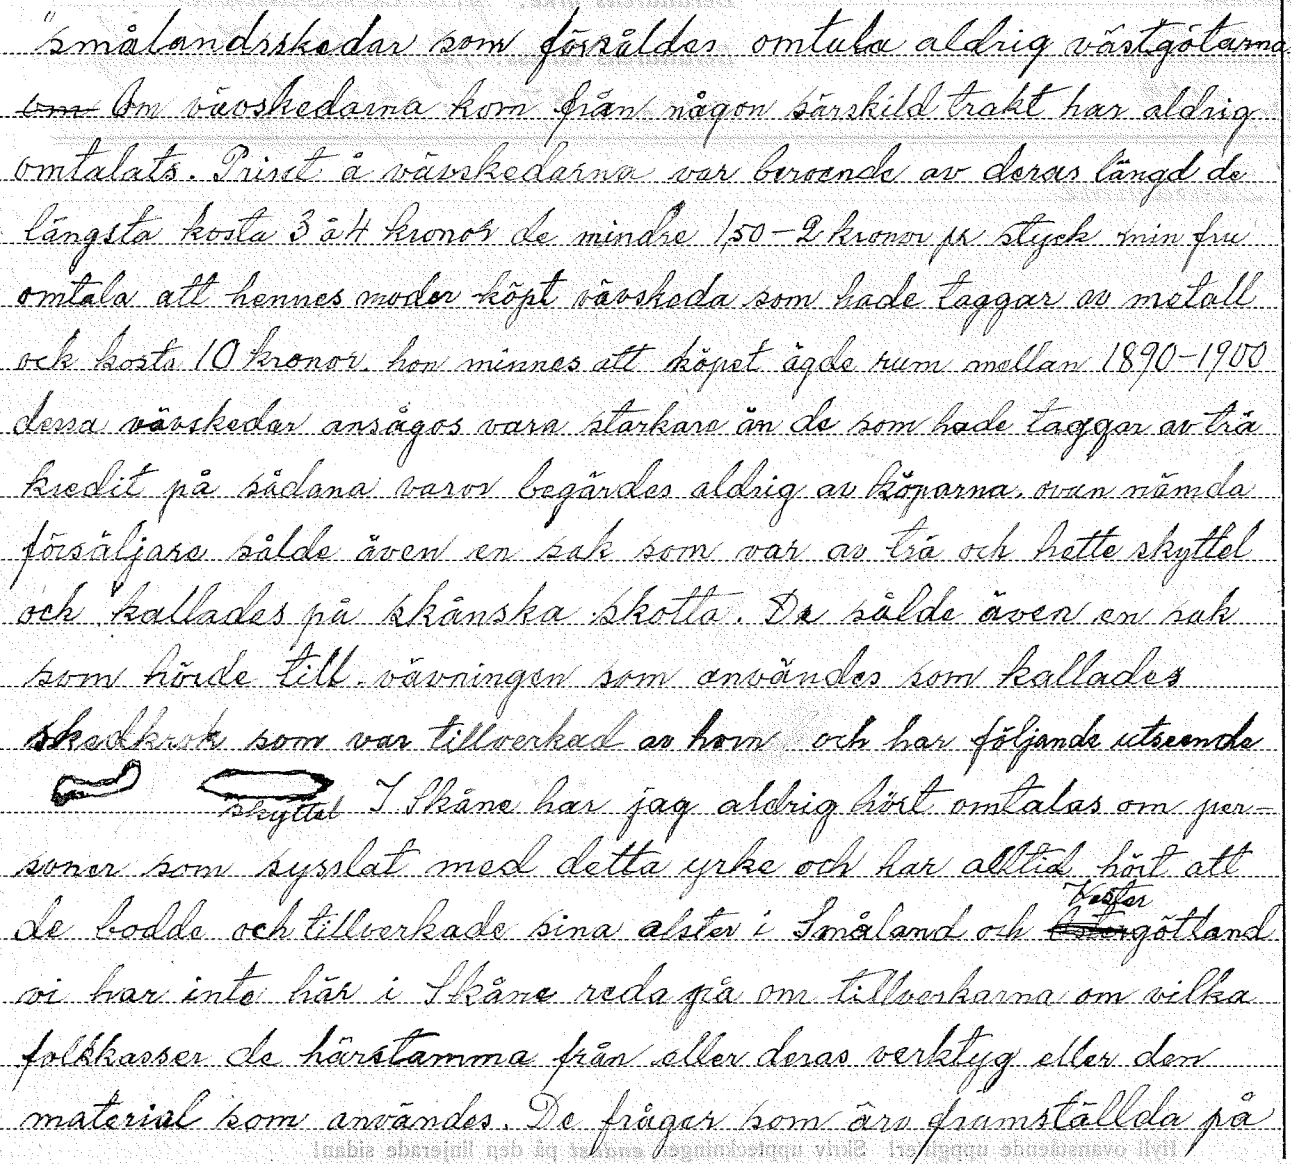 "smålandsskedar som försåldes omtala aldrig västgötarna.
om Om vävskedarna kom från någon särskild trakt har aldrig
omtalats. Priset å vävskedarna var beroende av deras längd de
längsta kosta 3 à 4 kronor de mindre 1,50-2 kronor pr styck min fru
omtala att hennes moder köpt vävskeda som hade taggar av metall
och kosta 10 kronor. hon minnes att köpet ägde rum mellan 1890-1900
dessa vävskedar ansågos vara starkare än de som hade taggar av trä
kredit på sådana varor begärdes aldrig av köparna. ovan nämda
försäljare sålde även en sak som var av trä och hette skyttel
och "kallades på skånska skotta. De sålde även en sak
som hörde till vävningen som användes som kallades
skedkrok som var tillverkad av horn och har följande utseende
skyttel I Skåne har jag aldrig hört omtalas om per-
soner som sysslat med detta yrke och har alltid hört att
de bodde och tillverkade sina alster i Småland och Vestergötland
vi har inte här i Skåne reda på om tillverkarna om vilka
folkkasser de härstamma från eller deras verktyg eller den
material som användes. De frågor som äro framställda på